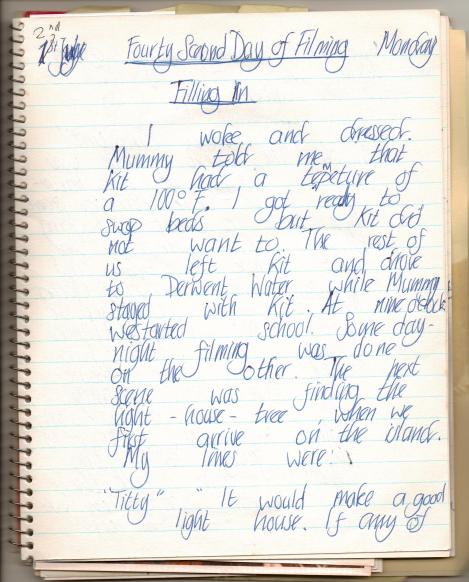 2nd
1st Judge Fourty Second Day of Filming Monday
Filling In
I woke and dressed.
Mummy told me that
Kit had a tempeture of
a 100°F. I got ready to
swop beds but Kit did
not want to. The rest of
us left Kit and drove
to Derwent Water while Mummy
stayed with Kit. At nine o'clock
westarted school. Some day-
night filming was done
on the other. The next
scene was finding the
light-house-tree, when we
first arrive on the island.
My lines were:
"Titty" " It would make a good
light house. If any of